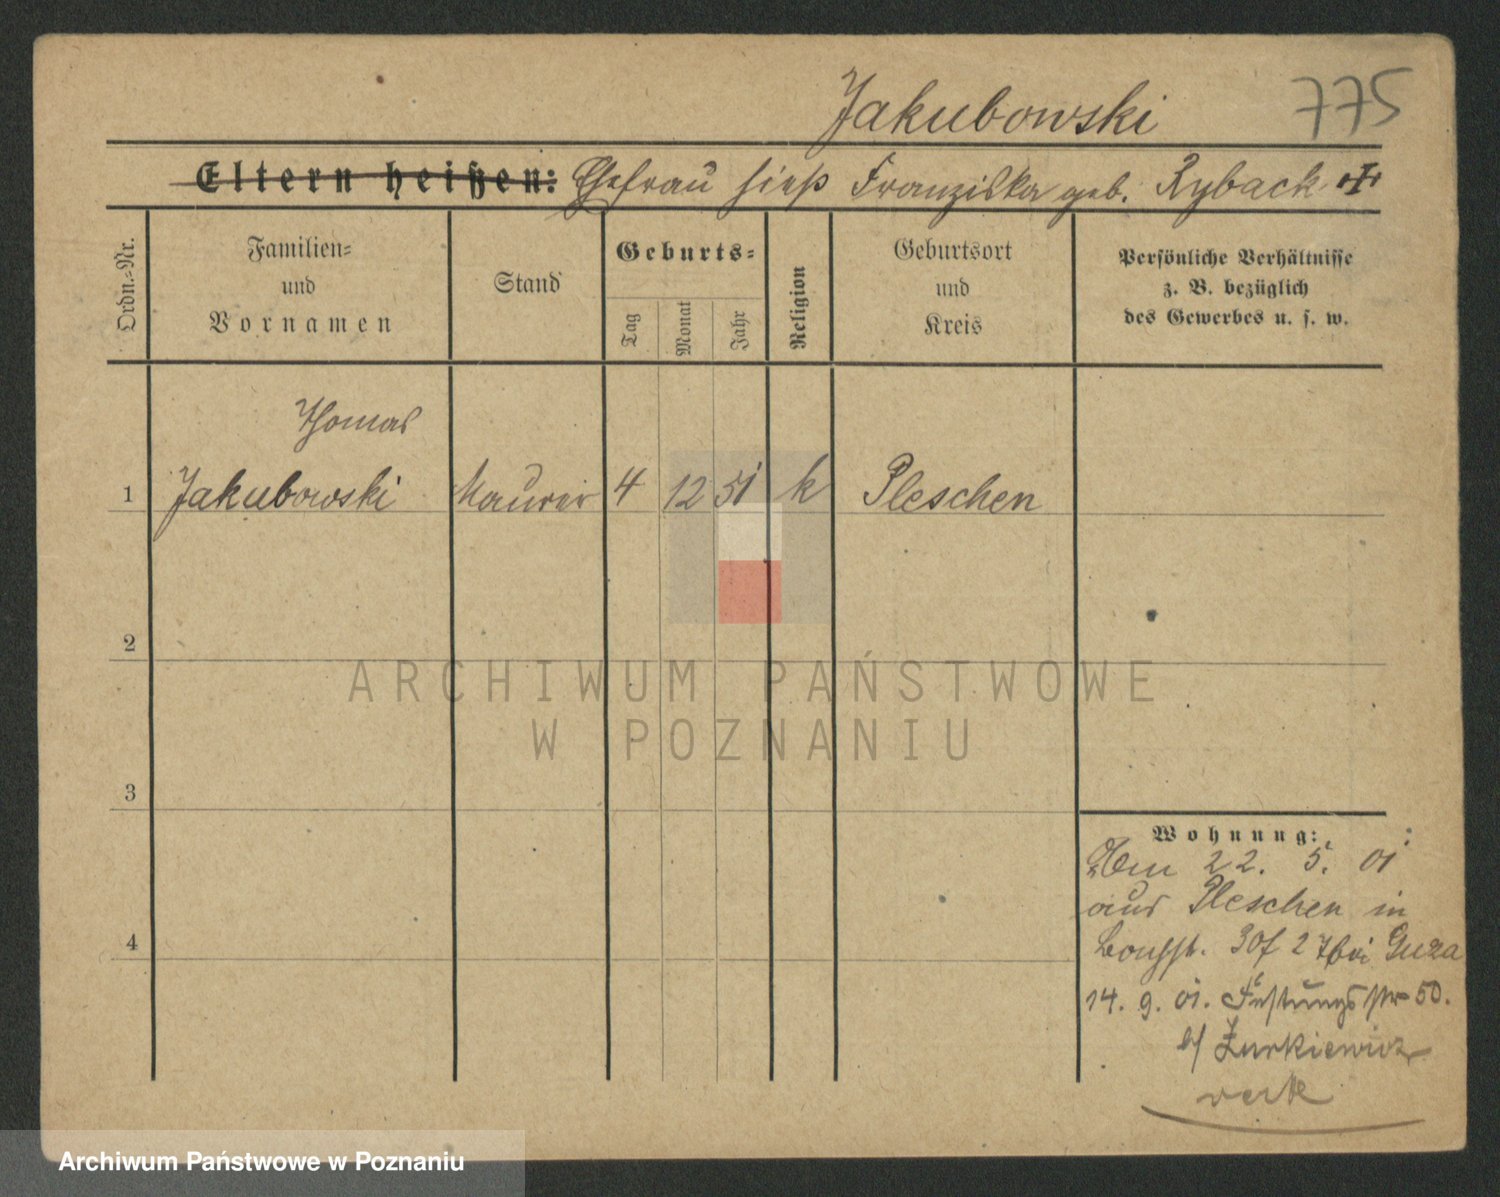 Jakubowski 775
Eltern heißen: Ehefrau hieß Franziska geb. Ryback
Ordn.=Nr.
Familien=
und
Vornamen
Stand
Geburts=
Tag
Monat
Jahr
Religion
Geburtsort
und
Kreis
Persönliche Verhältnisse
z. B. bezüglich
des Gewerbes u. s. w.
Thomas
1 Jakubowski Maurer 4 12 51 k Pleschen
2
3
4
Wohnung:
22. 5. 01
aus Pleschen in
bei Guza
14. 9. 01. Festungsstr 50.
b/ Zurkiewicz
ARCHIWUM PAŃSTWOWE
W POZNANIU
Archiwum Państwowe w Poznaniu